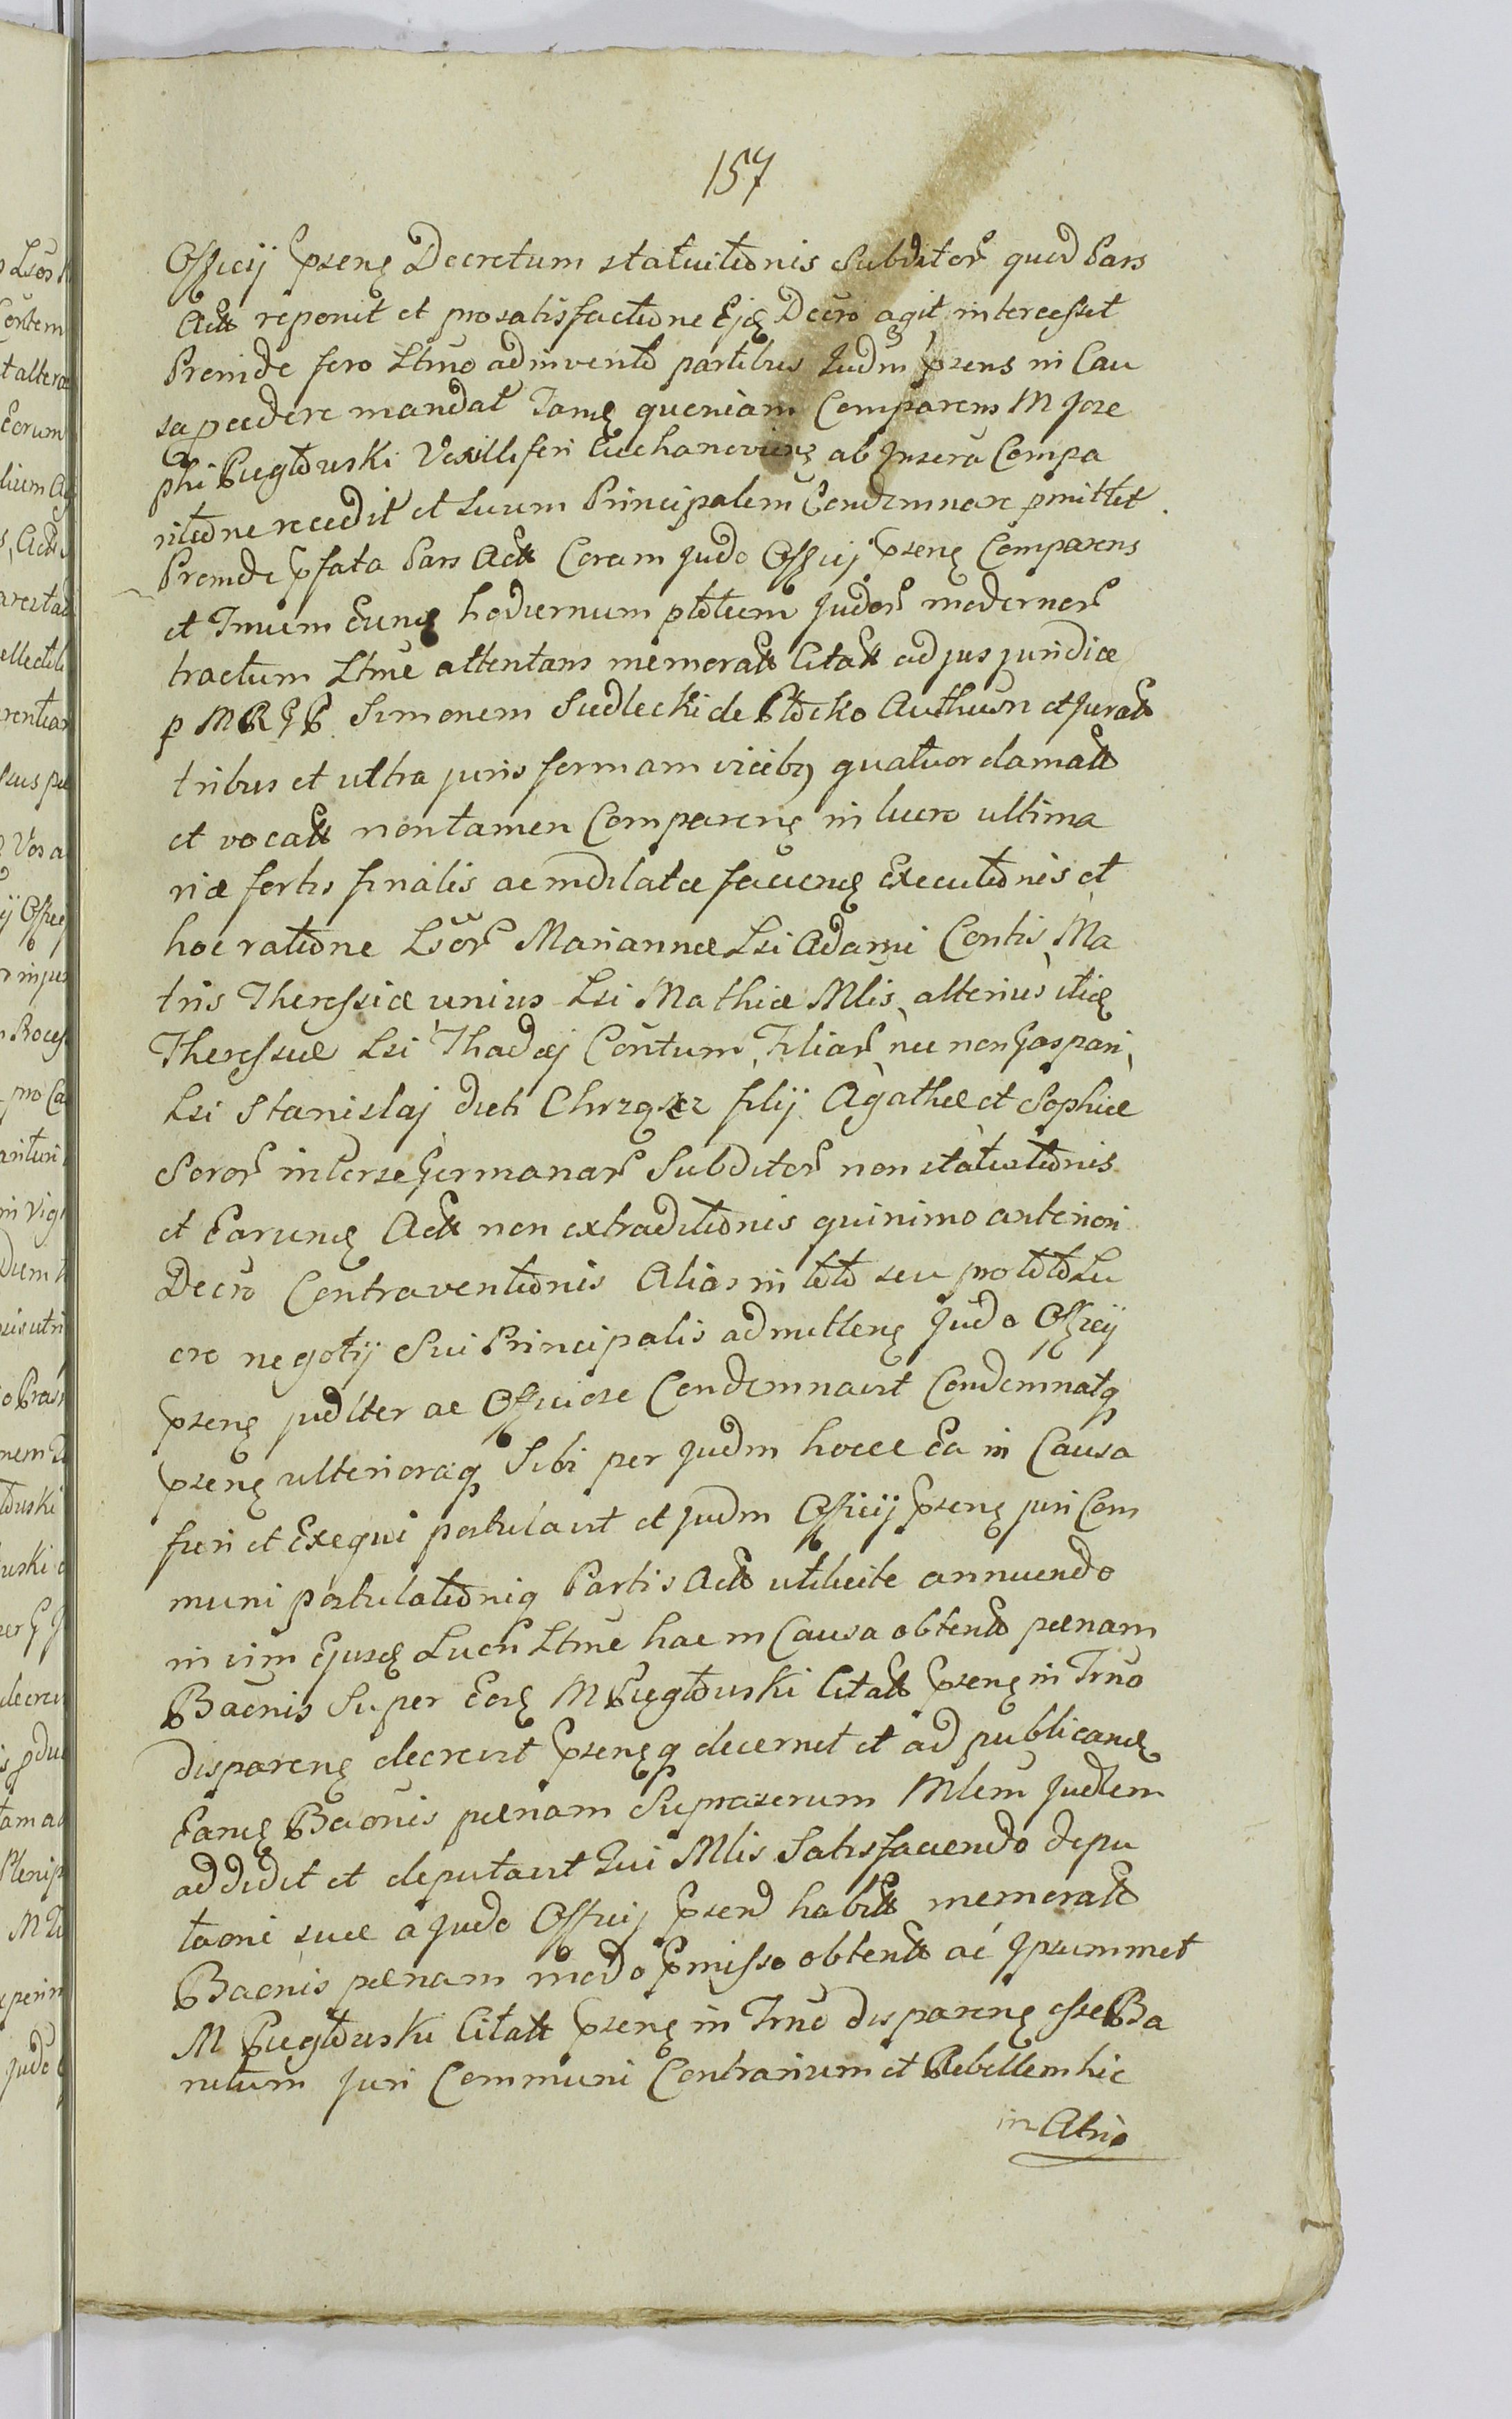 157
Officij pseng Decretum statuitionis Subditor quod Pars
Act reponit et pro satisfactione Ejg Decro agit intercessit
Proinde foro Ltmo adinvento partibus Judm psens in Cau
sa pcedere mandat Tamg quoniam Comparens M Joze
phi Pągowski Vexilliferi Ciechanovieng ab Jnsera Compa
ritione recedit et Suum Principalem Condemnare pmittit.
Proinde pfata Pars Act Coram Judo Officij pseng Comparens
et Tnum Eung hodiernum ptotum Judor modernor
tractum Ltme attentans memorat Citat ad jus juridice
p M R G P Simonem Siedlecki de Płocko Authum et Jurat
tribus et ultra juris formam vicibq quatuor clamat
et vocat non tamen Compareng in lucro ultima
riæ sortis finalis ac indilatæ facieng Executionis et
hoc ratione Lsor Mariannæ Lsi Adami Contis, Ma
tris Theressiæ unius Lsi Mathiæ Mlis, alterius itig
Theressiæ Lsi Thadej Contum, Filiar nec non Gaspari,
Lsi Stanislaj dicti Chrząszcz filij Agathæ et Sophiæ
Soror inter se Germanar Subditor non statuitionis
et Earung Act non extraditionis quinimo anteriori
Decro Contraventionis Alias in toto seu pro toto Lu
cro negotij Sui Principalis admitteng Judo Officij
pseng juditer ac Officiose Condemnavit Condemnatq
pseng ulterioraq Sibi per Judm hocce Ea in Causa
fieri et Exequi postulavit et Judm Officij pseng juri Com
muni postulationiq Partis Act utilicite annuendo
in vim Ejusg Lucri Ltme hac in Causa obtento pænam
Bacnis Super Eog M Pągowski Citat pseng in Trno
dispareng decrevit psengq decernit et ad publicang
Eang Baonis pænam Suprascrum Mlem Judlem
addidit et deputavit Qui Mlis Satisfaciendo depu
taoni suæ a Judo Officij psend habit memorat
Baonis pænam modo pmisso obtent ac Jpsummet
M Pągowski Citat pseng in Trno dispareng esse Ba
nitum Juri Communi Contrarium et Rebellem hic
in Atrio